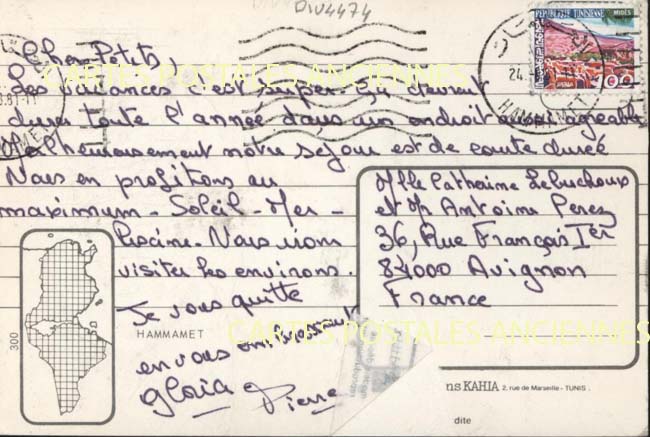 DIV4474
REPUBLIQUE TUNISIENNE
MIDES
100
24
HAMMAMET
Chers Ptits,
CARTES POSTALES ANCIENNES
Les vacances c'est super. Ça devrait
durer toute l'année dans un endroit aussi agréable
Malheureusement notre séjour est de courte durée
Nous en profitons au
maximum - Soleil - Mer -
Piscine. Nous irons
visiter les environs.
Je vous quitte
en vous embrassant
Gloria Pierre
Mlle Catherine Lebuchoux
et Mr Antoine Perez
36, Rue François Ier
84000 Avignon
France
300
HAMMAMET
CARTES POSTALES ANCIENNES
ns KAHIA 2, rue de Marseille - TUNIS.
dite